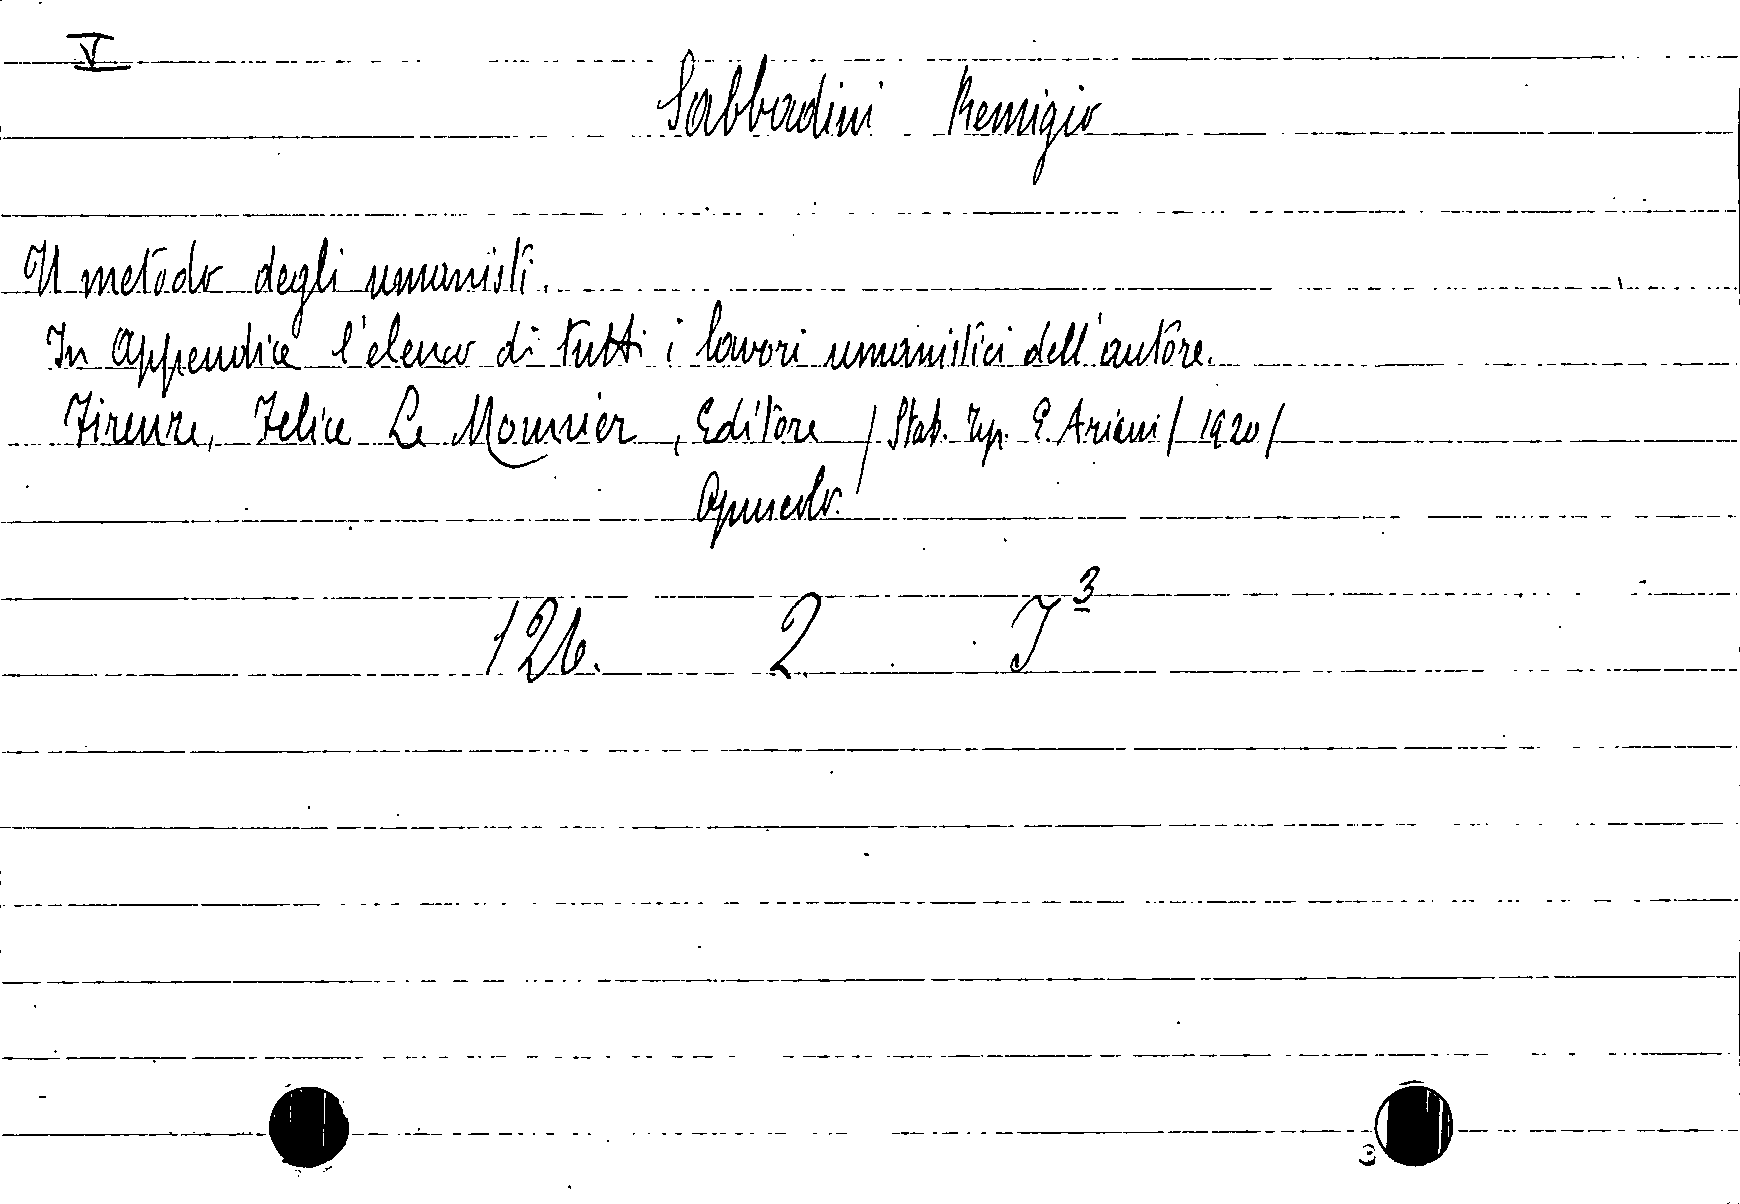 V
Sabbadini Remigio
Il metodo degli umanisti.
In Appendice l'elenco di tutti i lavori umanistici dell'autore.
Firenze, Felice Le Monnier, Editore / Stab. Tip. E. Ariani / 1920 /
Opuscolo.
126. 2 I³